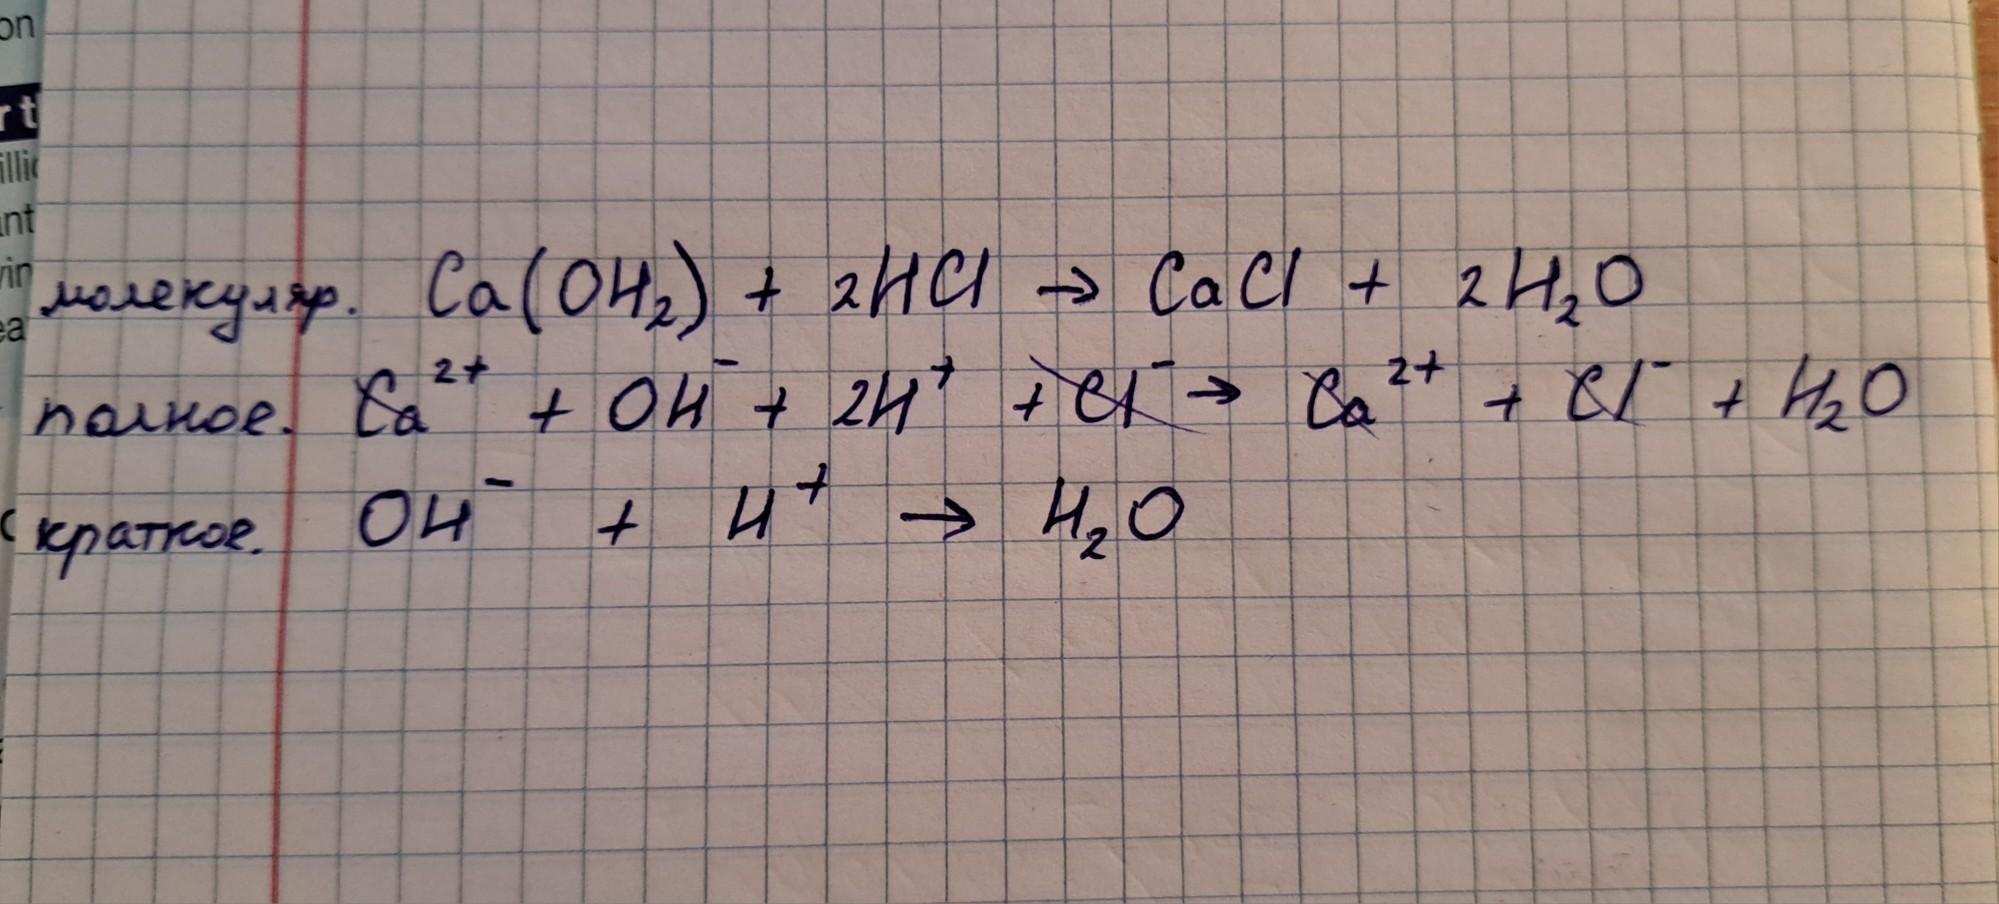 on
r t
illic
ant
vin
ea
молекуляр. Ca(OH₂) + 2HCl → CaCl + 2H₂O
полное. Ca²⁺ + OH⁻ + 2H⁺ + Cl⁻ → Ca²⁺ + Cl⁻ + H₂O
краткое. OH⁻ + H⁺ → H₂O